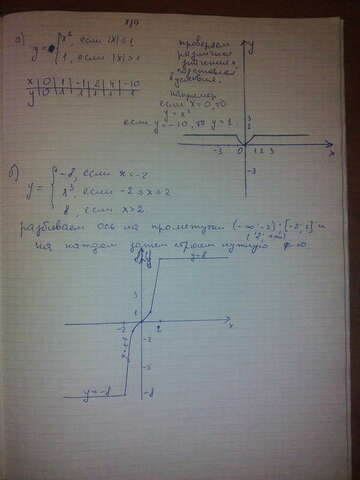 а) y = { x², если |x| ≤ 1
1, если |x| > 1
x | 0 | 1 | -1 | 2 | 4 | -10
y | 0 | 1 | 1 | 1 | 1 | 1
проверяем
различные
значения,
подставляя
в условия.
Например
если x = 0, то
y = x²
если y = -10, то y = 1.
y
3
1
-3 -1 0 1 2 3 x
-3
б) y = { -8, если x < -2
x³, если -2 ≤ x ≤ 2
8, если x > 2
разбиваем ось на промежутки (-∞; -2); [-2; 2] и
(2; +∞)
на каждом затем строем нужную ф-ю.
y=8
5
1
-2 2 x
-2
-5
y=-8 -8